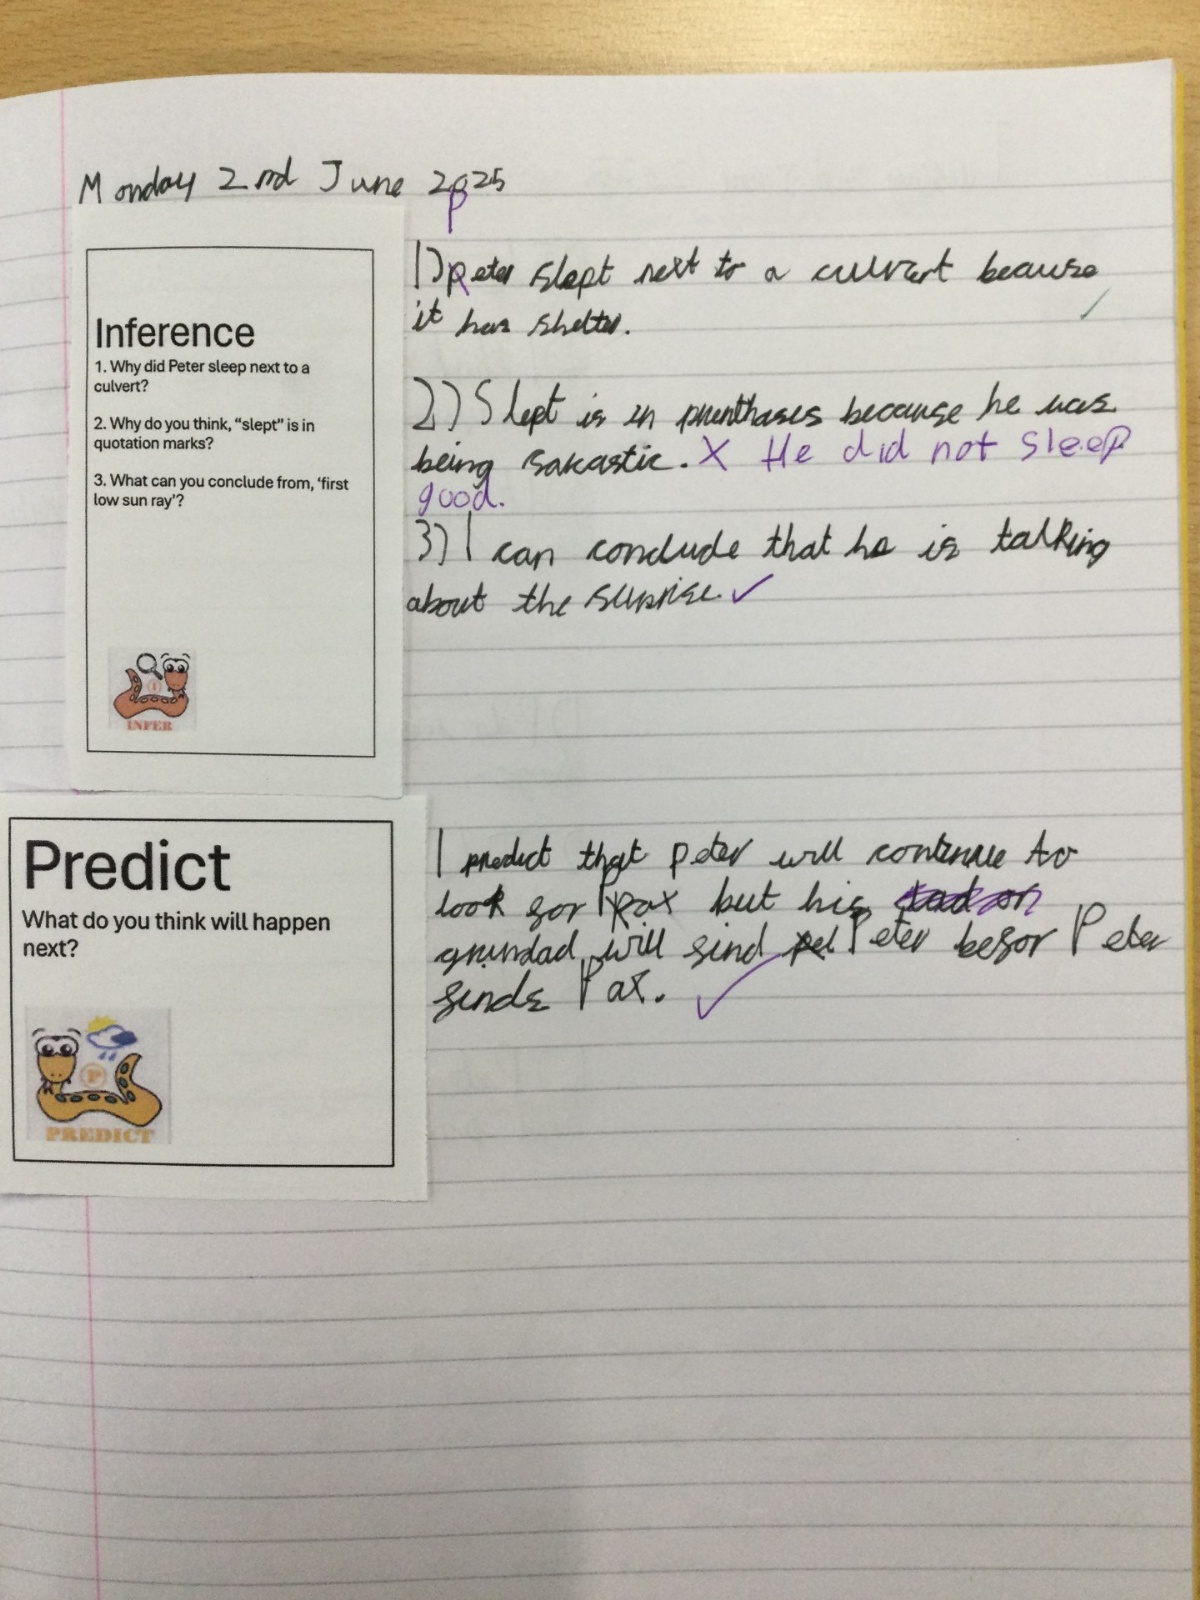 Monday 2nd June 2025
P
Inference
1. Why did Peter sleep next to a
culvert?
2. Why do you think, “slept” is in
quotation marks?
3. What can you conclude from, ‘first
low sun ray’?
INFER
1) peter slept next to a culvert because
it has shelter.
2) Slept is in prenthases because he was
being sakastic. X He did not sleep
good.
3) I can conclude that he is talking
about the sunrise. ✓
Predict
What do you think will happen
next?
P
PREDICT
I predict that peter will continue to
look for Pax but his
grandad will find Peter befor Peter
finds Pax. ✓